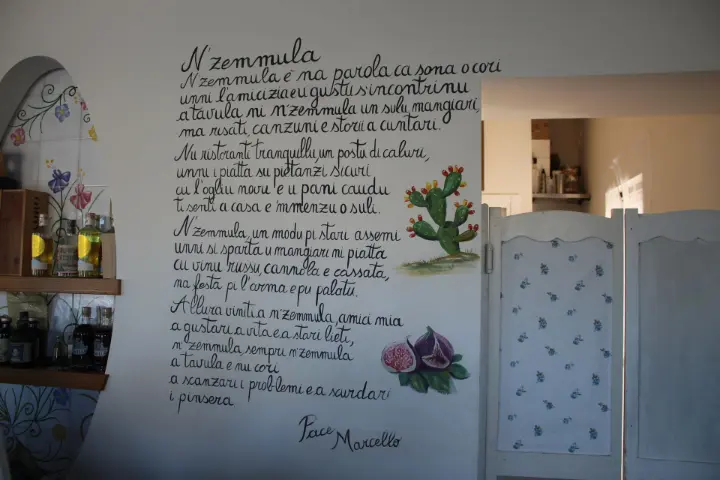 N'zemmula
N'zemmula è na parola ca sona o cori
unni l'amicizia e u gustu s'incontrinu
a tavula ni n'zemmula un sulu mangiari,
ma risati, canzuni e storii a cuntari.
Nu ristoranti tranquillu, un postu di caluri,
unni i piatta su pietanzi sicuri
cu l'ogliu novu e u pani caudu
ti senti a casa e 'mmenzu o suli.
N'zemmula, un modu pi stari assemi
unni si sparta u mangiari ni piatta
cu vinu russu, cannola e cassata,
na festa pi l'arma e pu palatu.
Allura viniti a n'zemmula, amici mia
a gustari a vita e a stari lieti,
n'zemmula, sempri n'zemmula
a tavula e nu cori
a scanzari i problemi e a scurdari
i pinsera
Pace Marcello